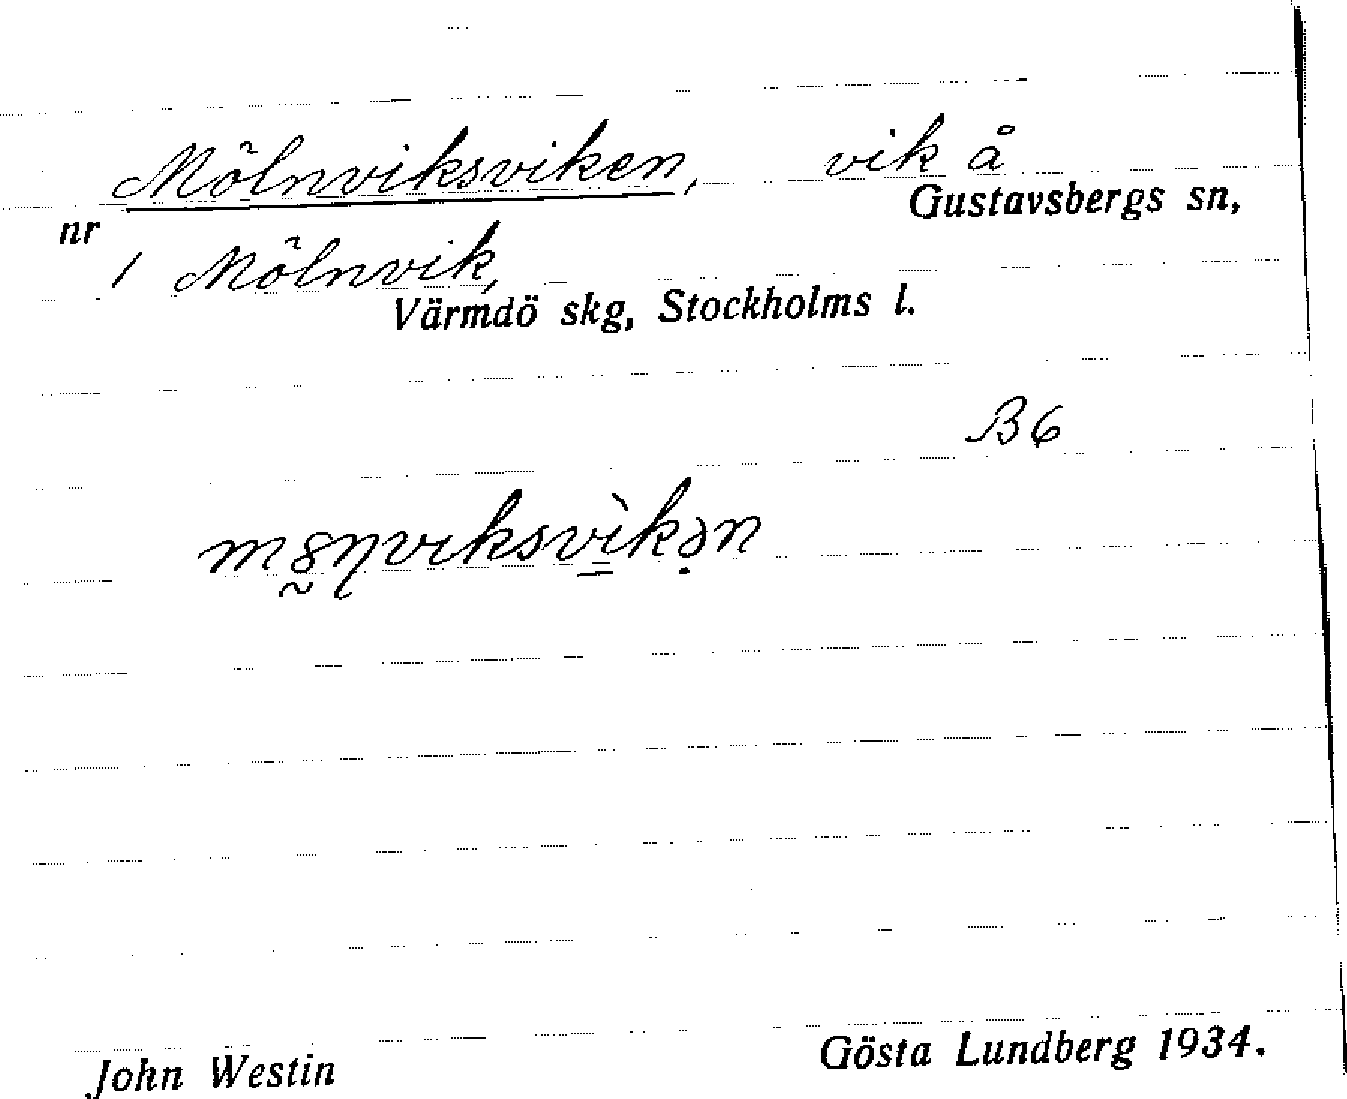 Mölnviksviken, vik å
Gustavsbergs sn,
nr
1 Mölnvik,
Värmdö skg, Stockholms l.
B6
John Westin
Gösta Lundberg 1934.